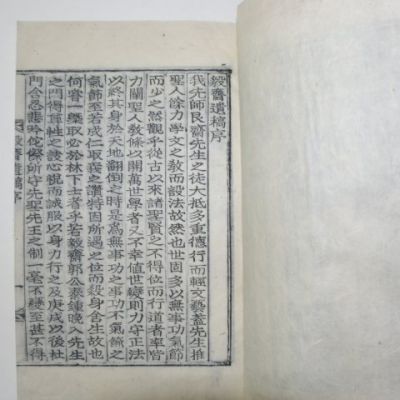 毅齋遺稿序
我先師艮齋先生之徒大抵多重德行而輕文藝蓋先生推
聖人餘力學文之敎而設法故然也世固多以無事功氣節
而少之然觀乎從古以來諸聖賢之不得位而行道者率皆
力闡聖人敎條以開萬世學者又不幸值世變則力守正法
以終其身於天地翻倒之時是爲無事功之事功不氣節之
氣節至若成仁取義之讚特固所遇之位而殺身舍生故也
何嘗一槩取必於林下士者乎若毅齋郭公泰鍾晚入先生
之門得尊性之訣心視而誠服以身力行之及庚戌以後杜
門含忍所守先聖先王之制一毫不變至甚不得
毅齋遺稿序